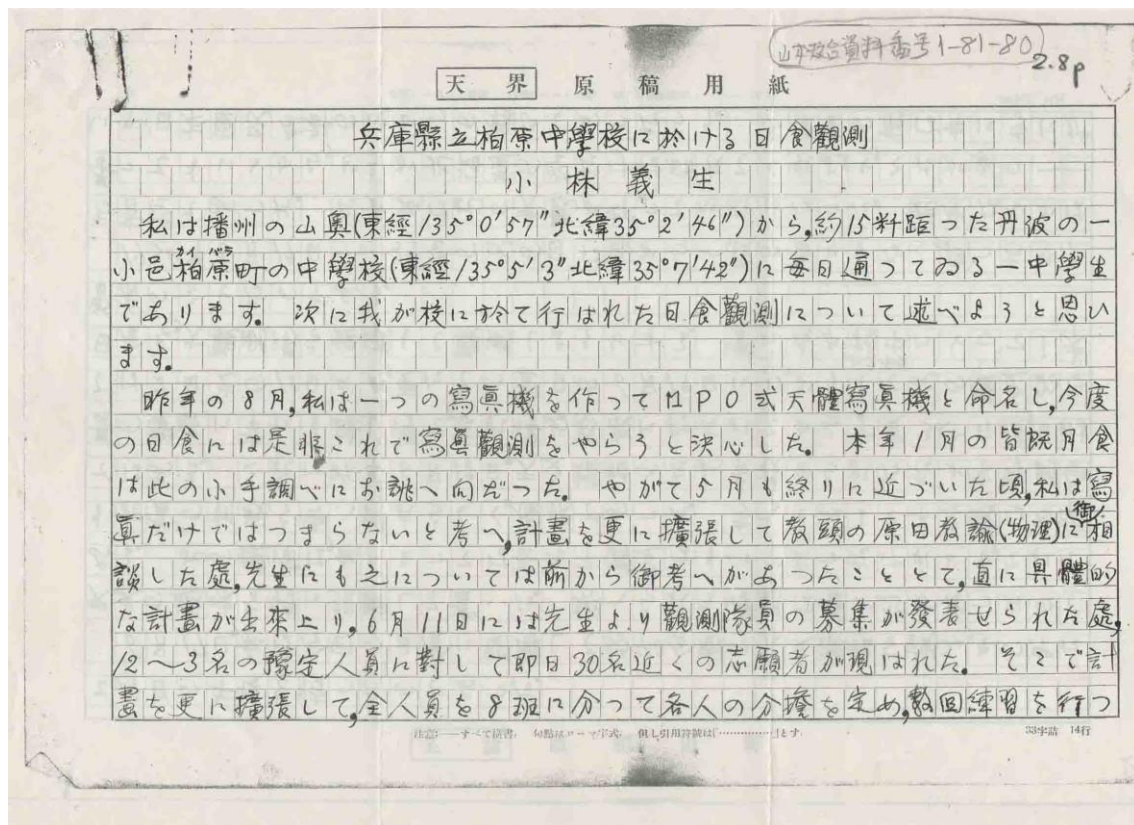 山本天文台資料番号1-81-80
2.8p
天界 原稿用紙
兵庫縣立柏原中學校に於ける日食觀測
小林義生
私は播州の山奥(東經135°0′57″北緯35°2′46″)から,約15粁距つた丹波の一
カイ バラ
小邑柏原町の中學校(東經135°5′3″北緯35°7′42″)に毎日通つてゐる一中學生
であります。 次に我が校に於て行はれた日食觀測について述べようと思ひ
ます。
昨年の8月,私は一つの寫眞機を作つてMPO式天體寫眞機と命名し,今度
の日食には是非これで寫眞觀測をやらうと決心した。 本年1月の皆既月食
は此の小手調べにお誂へ向だつた。 やがて5月も終りに近づいた頃,私は寫
眞だけではつまらないと考へ,計畫を更に擴張して教頭の原田教諭(物理)に御相
談した處,先生にも之については前から御考へがあつたこととて,直に具體的
な計畫が出來上り,6月11日には先生より觀測隊員の募集が發表せられた處,
12〜3名の豫定人員に對して即日30名近くの志願者が現はれた。 そこで計
畫を更に擴張して,全人員を8班に分つて各人の分擔を定め,數回練習を行つ
注意――すべて横書 句點はローマ字式 但し引用符號は「…………」とす
33字詰 14行